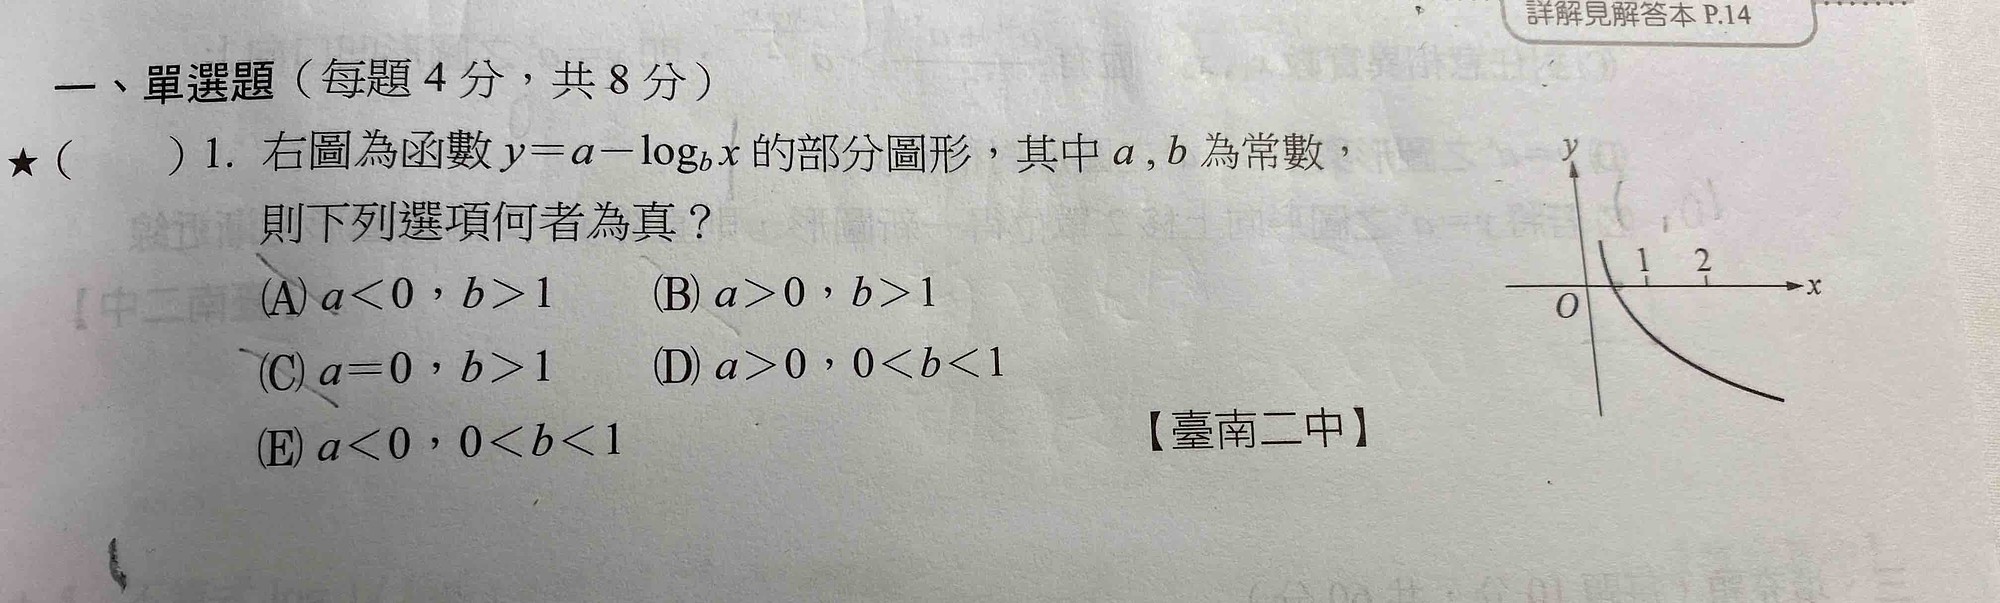 詳解見解答本 P.14
一、單選題（每題 4 分，共 8 分）
★（ ）1. 右圖為函數 y=a−log_b x 的部分圖形，其中 a , b 為常數，
則下列選項何者為真？
(A) a<0，b>1 (B) a>0，b>1
(C) a=0，b>1 (D) a>0，0<b<1
(E) a<0，0<b<1
【臺南二中】
y
1 2
x
O